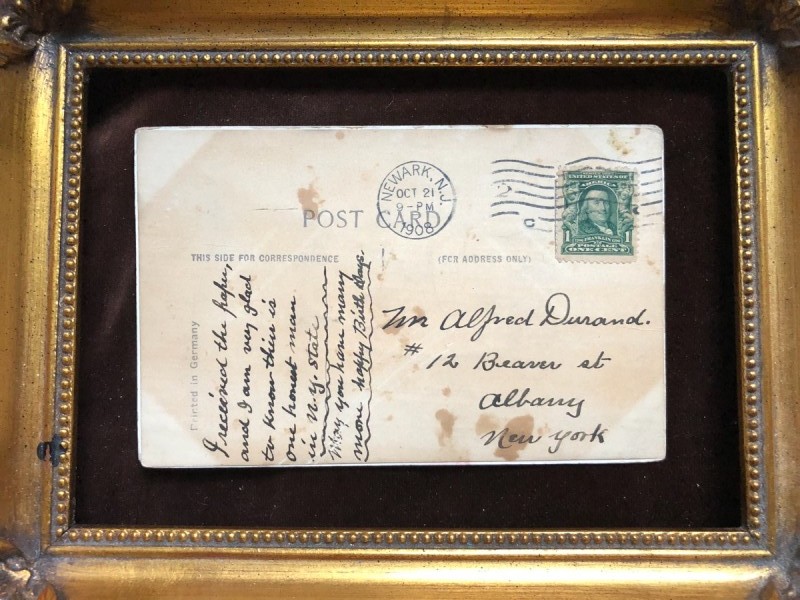 NEWARK, N.J.
OCT 21
9-PM
1908
UNITED STATES OF
AMERICA
FRANKLIN
POSTAGE
1 1
ONE CENT
POST CARD
THIS SIDE FOR CORRESPONDENCE
(FOR ADDRESS ONLY)
Printed in Germany
I received the paper,
and I am very glad
to know thir is
one honest man
in N.Y. State
May you have many
more happy Birth days.
Mr Alfred Durand.
# 12 Beaver st
Albany
New York